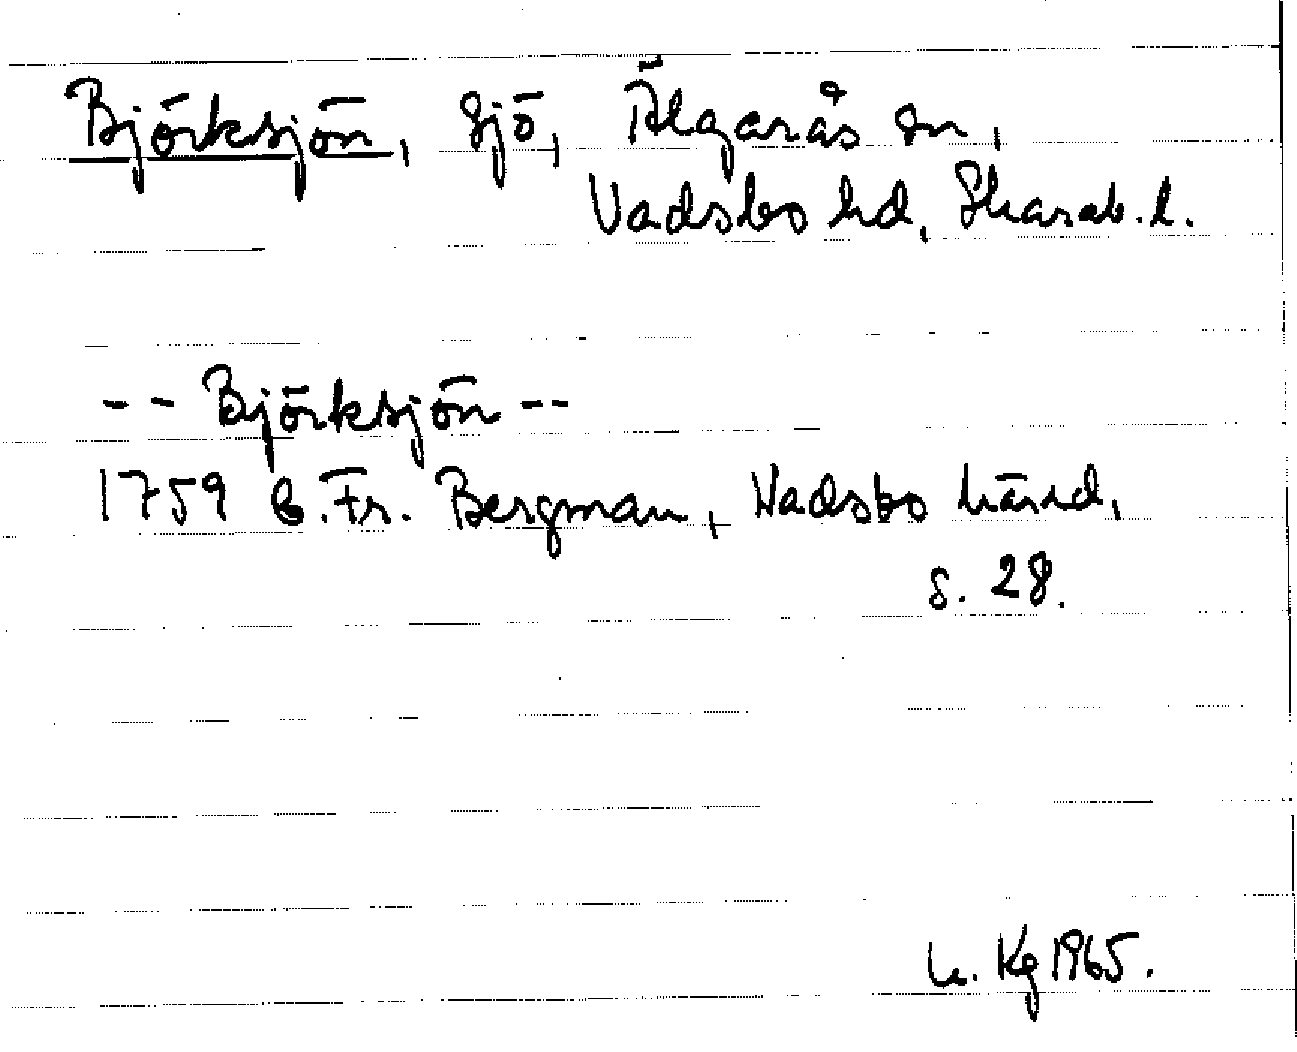 Björksjön, sjö, Älgarås sn,
Vadsbo hd, Skarab. l.
-- Björksjön --
1759 C. Fr. Bergman, Wadsbo härad,
s. 28.
Kg 1965.